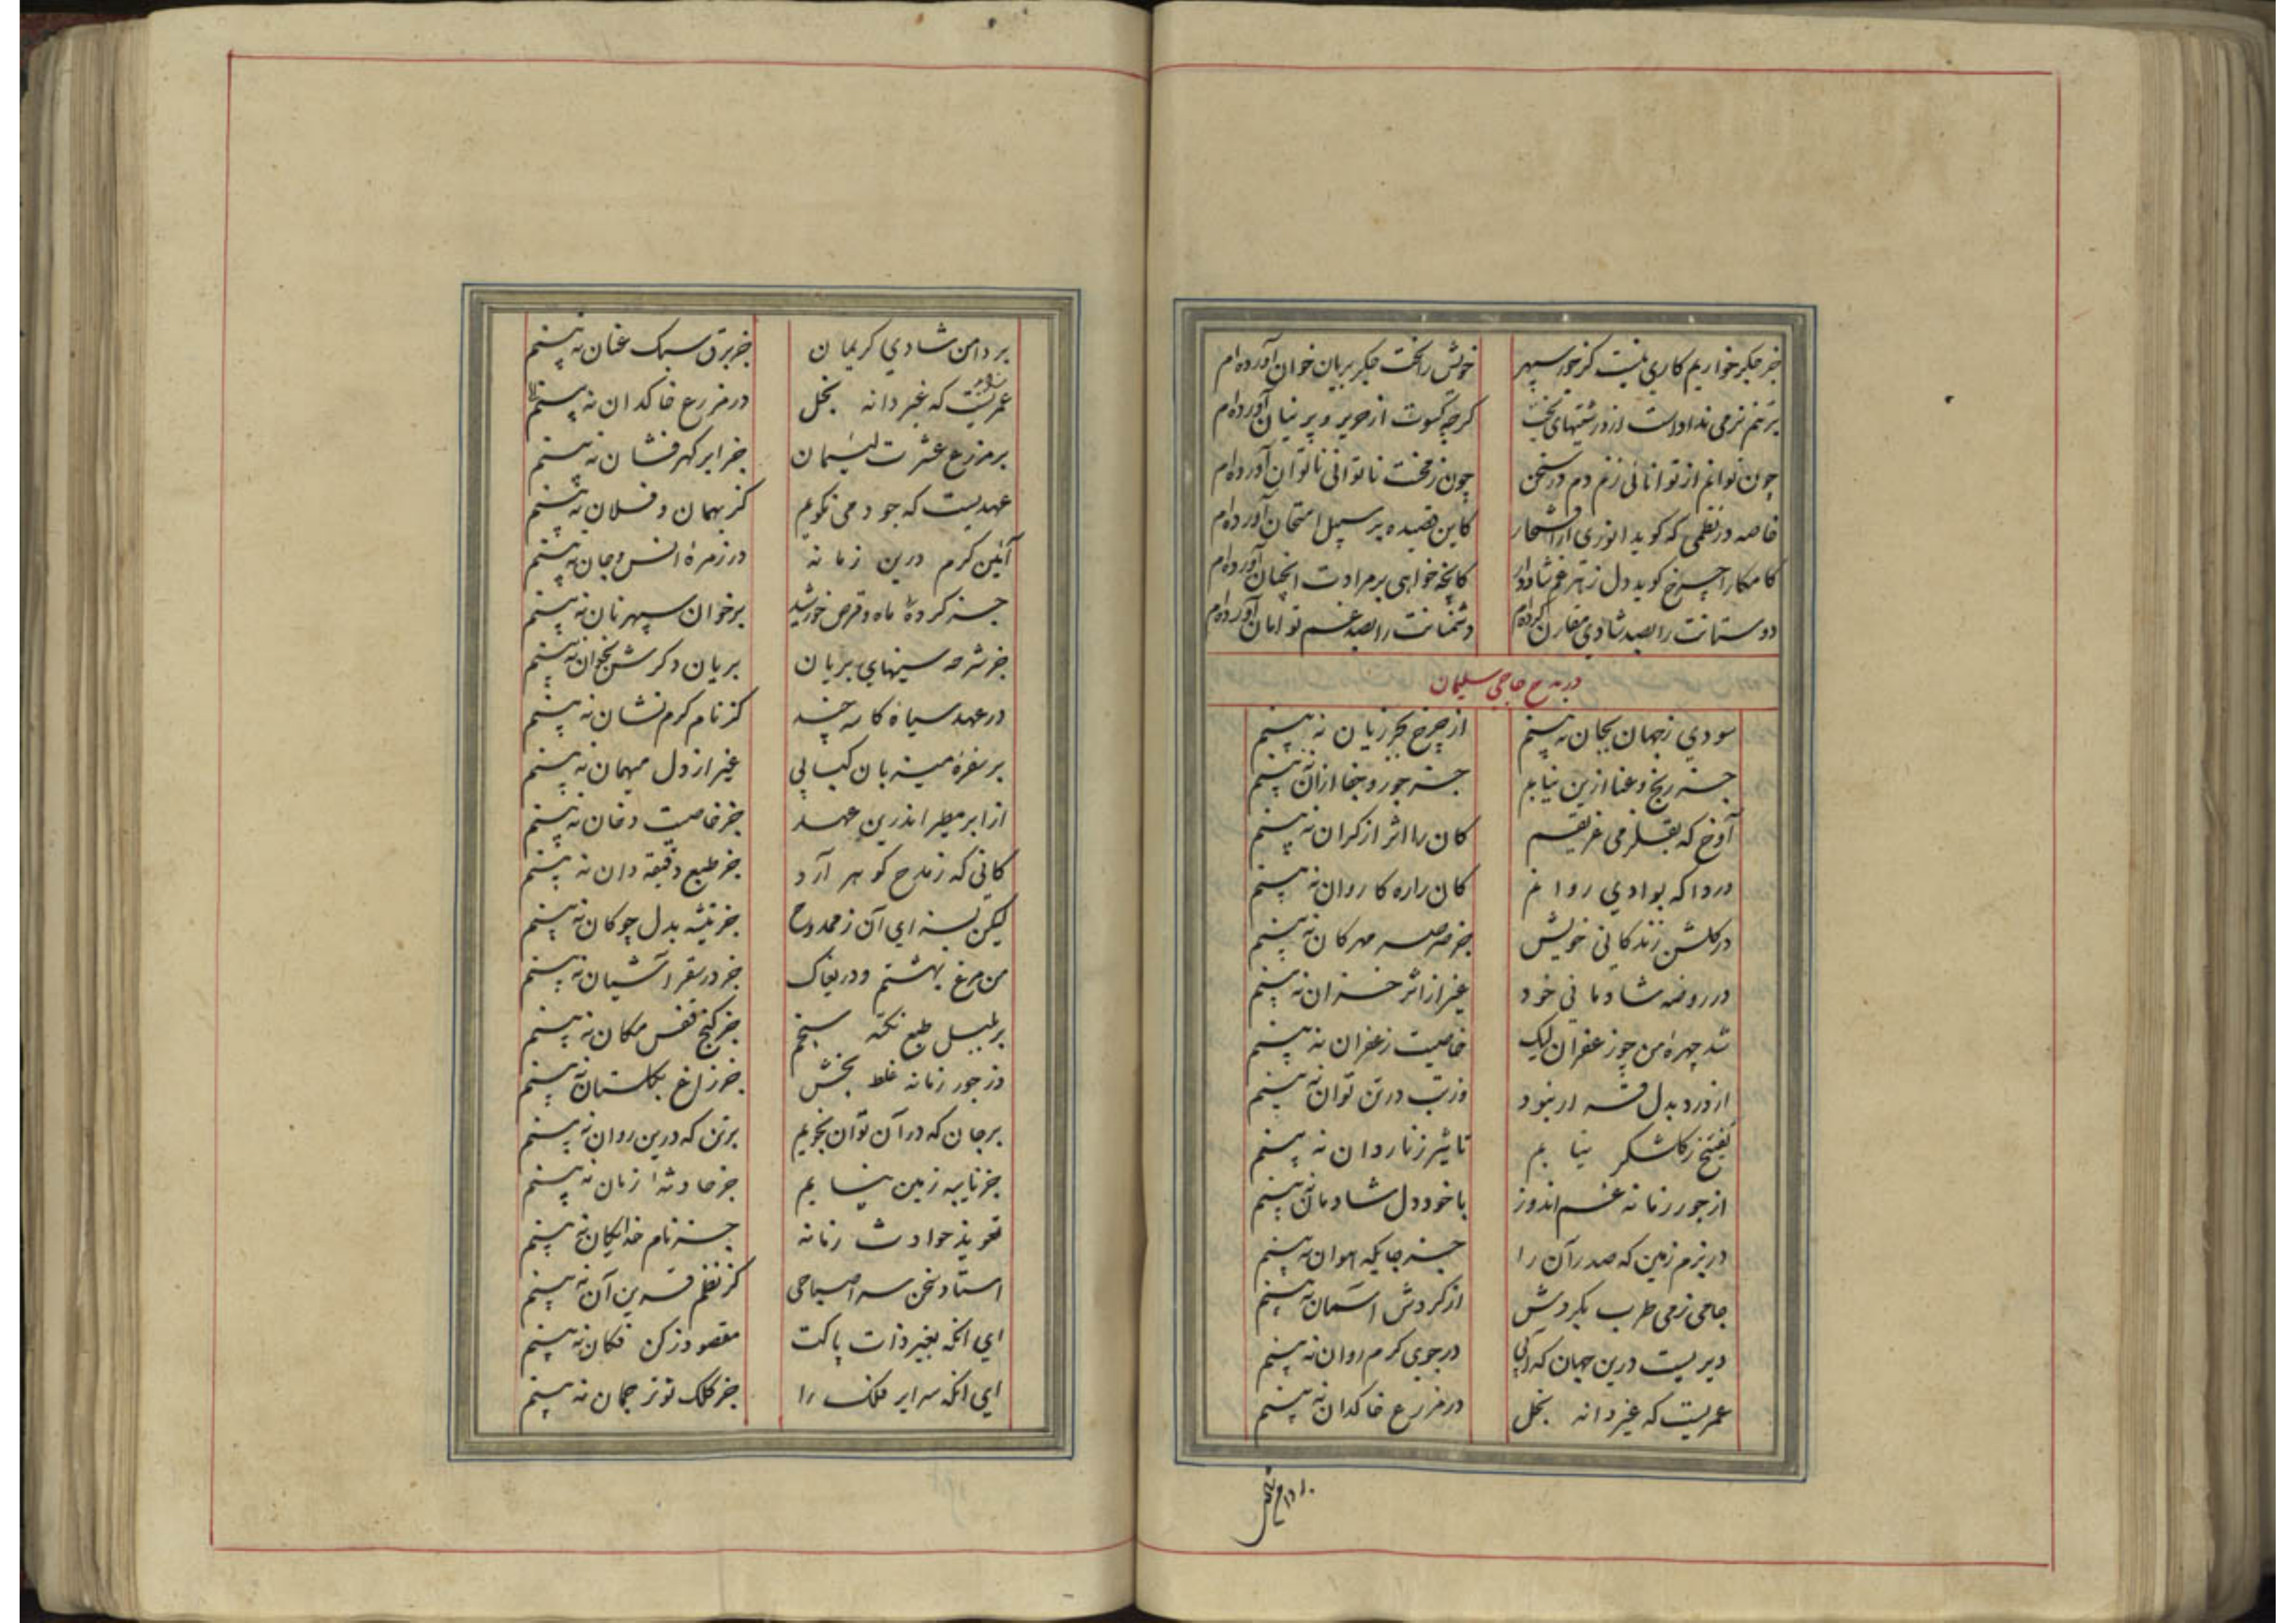 جز جگر خواریم کاری نیست کز جور سپهر خونش راتخت جگر بریان خوان آورده‌ام
بر تنم نرمی نداداست از درشتیهای بخت کرچه کسوت از حریر و پرنیان آورده‌ام
چون توانم از توانائی زنم دم در سخن چون زمخت ناتوانی ناتوان آورده‌ام
خاصه در نظمی که کوید انوری از افتخار کاین قصیده بر سبیل امتحان آورده‌ام
کامکارا چرخ کوید دل ز غم شاددار کانچه خواهی بر مرادت انچنان آورده‌ام
دوستانت را بصد شادی مقارن کرده‌ام دشمنانت را بصد غم توامان آورده‌ام
در مدح حاجی سلیمان
سودی ز جهان بجان نه بینم از چرخ بجز زیان نه بینم
جز رنج و عنا ازین نیابم جز جور و جفا ازان نه بینم
آوخ که بقلزمی غریقم کان را اثر از کران نه بینم
دردا که بوادی روانم کان راره کاروان نه بینم
در کلشن زندکانی خویش جز صرصر مهرکان نه بینم
در روضه شادمانی خود غیر از اثر خزان نه بینم
شد چهرهٔ من چو زعفران لیک خاصیت زعفران نه بینم
از درد بدل قرار نبود وز تب در تن توان نه بینم
نیابم تاثیر ز ناردان نه بینم
از جور زمانه غم اندوز با خود دل شادمان نه بینم
در بزم زمین که صدر آن را جز جایکه هوان نه بینم
جامی ز می طرب بکردش از کردش آسمان نه بینم
دیریست درین جهان که آبی در جوی کرم روان نه بینم
عمریست که غیر دانه بخل در مزرع خاکدان نه بینم
بر دامن
بر دامن شادی کریمان جز برق سبک عنان نه بینم
عمریست که غیر دانه بخل در مزرع خاکدان نه بینم
بر مزرع عشرت لئیمان جز ابر کهر فشان نه بینم
عهدیست که جود می نکویم کز بهمان و فلان نه بینم
آئین کرم درین زمانه در زمرهٔ انس و جان نه بینم
جز کردهٔ ماه و قرص خورشید بر خوان سپهر نان نه بینم
جز شرحه سینهای بریان بریان دکرش بخوان نه بینم
در عهد سیاه کاسه چند کز نام کرم نشان نه بینم
بر سفرهٔ میزبان کبابی غیر از دل میهمان نه بینم
از ابر مطیر اندرین عهد جز خاصیت دخان نه بینم
کانی که ز مدح کوهر آرد جز طبع دقیقه دان نه بینم
لیکن بسزای آن ز ممدوح جز تیشه بدل چو کان نه بینم
من مرغ بهشتم و دریغاک جز در سقر آشیان نه بینم
بر بلبل طبع نکته سنجم جز کنج قفس مکان نه بینم
وز جور زمانه غلط بخش جز زاغ بکلستان نه بینم
بر جان که در آن توان بجویم بر تن که درین روان نه بینم
جز نایبه زمین نیابم جز حادثهٔ زمان نه بینم
تعویذ حوادث زمانه جز نام خدایکان نه بینم
استاد سخن سرا صباحی کز نظم قرین آن نه بینم
ای انکه بغیر ذات پاکت مقصود ز کن فکان نه بینم
ای انکه سرایر فلک را جز کلک تو ترجمان نه بینم